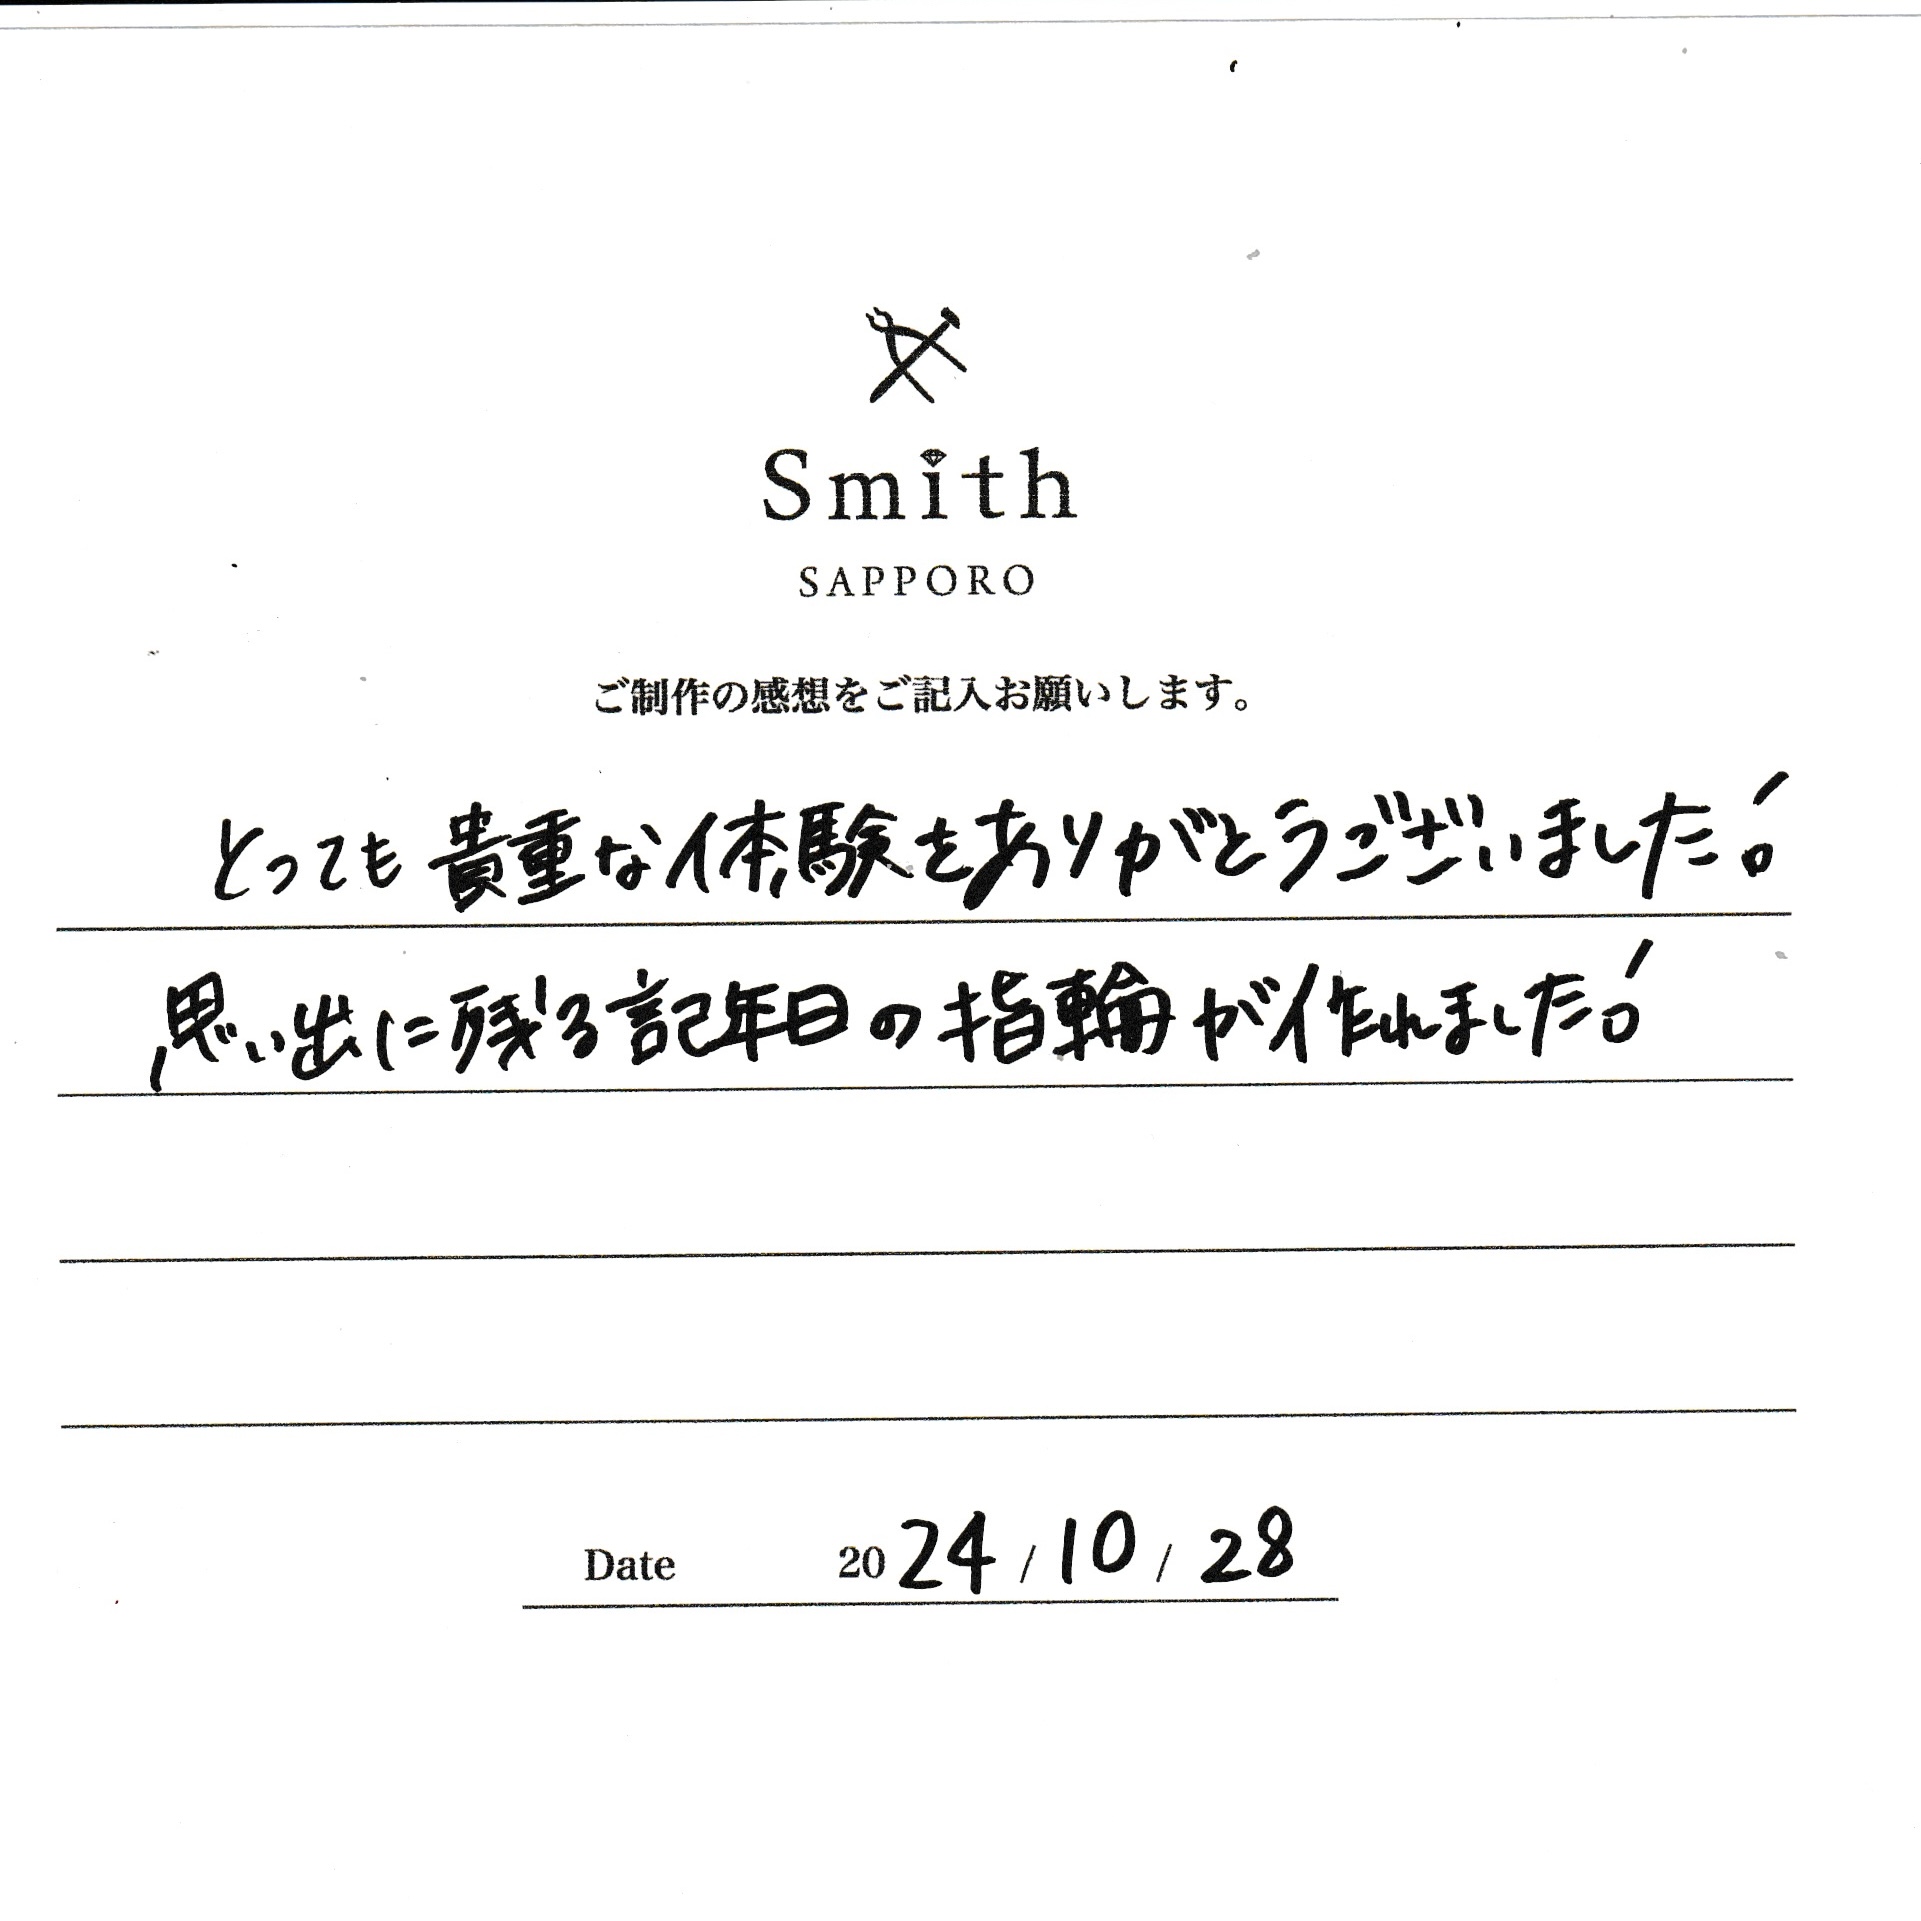 Smith
SAPPORO
ご制作の感想をご記入お願いします。
とっても貴重な体験をありがとうございました!
思い出に残る記年日の指輪が作れました!
Date 2024/10/28